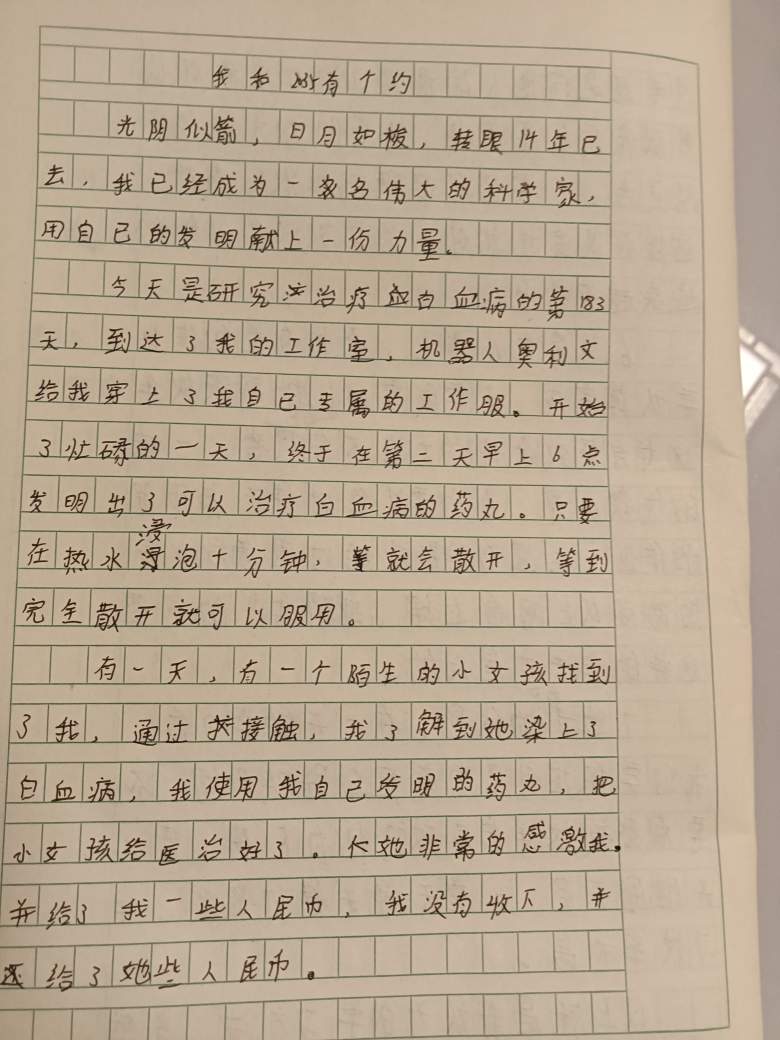 我和2035有个约
光阴似箭，日月如梭，转眼14年已
去，我已经成为一名伟大的科学家，
用自己的发明献上一份力量。
今天是研究治疗白血病的第183
天，到达了我的工作室，机器人奥利文
给我穿上了我自己专属的工作服。开始
了忙碌的一天，终于在第二天早上6点
发明出了可以治疗白血病的药丸。只要
在热水浸泡十分钟，就会散开，等到
完全散开就可以服用。
有一天，有一个陌生的小女孩找到
了我，通过接触，我了解到她染上了
白血病，我使用我自己发明的药丸，把
小女孩给医治好了。她非常的感激我。
并给了我一些人民币，我没有收下，并
还给了她些人民币。